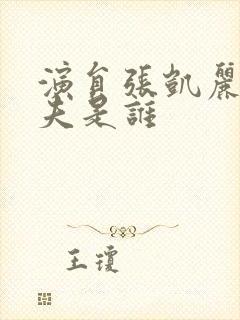 演員張凱麗
夫是誰
王瓊